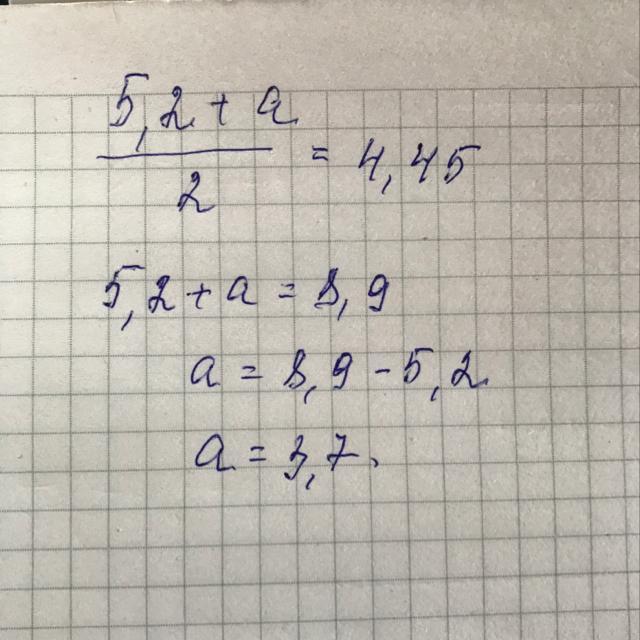 5,2 + a
—— = 4,45
2
5,2 + a = 8,9
a = 8,9 - 5,2
a = 3,7.